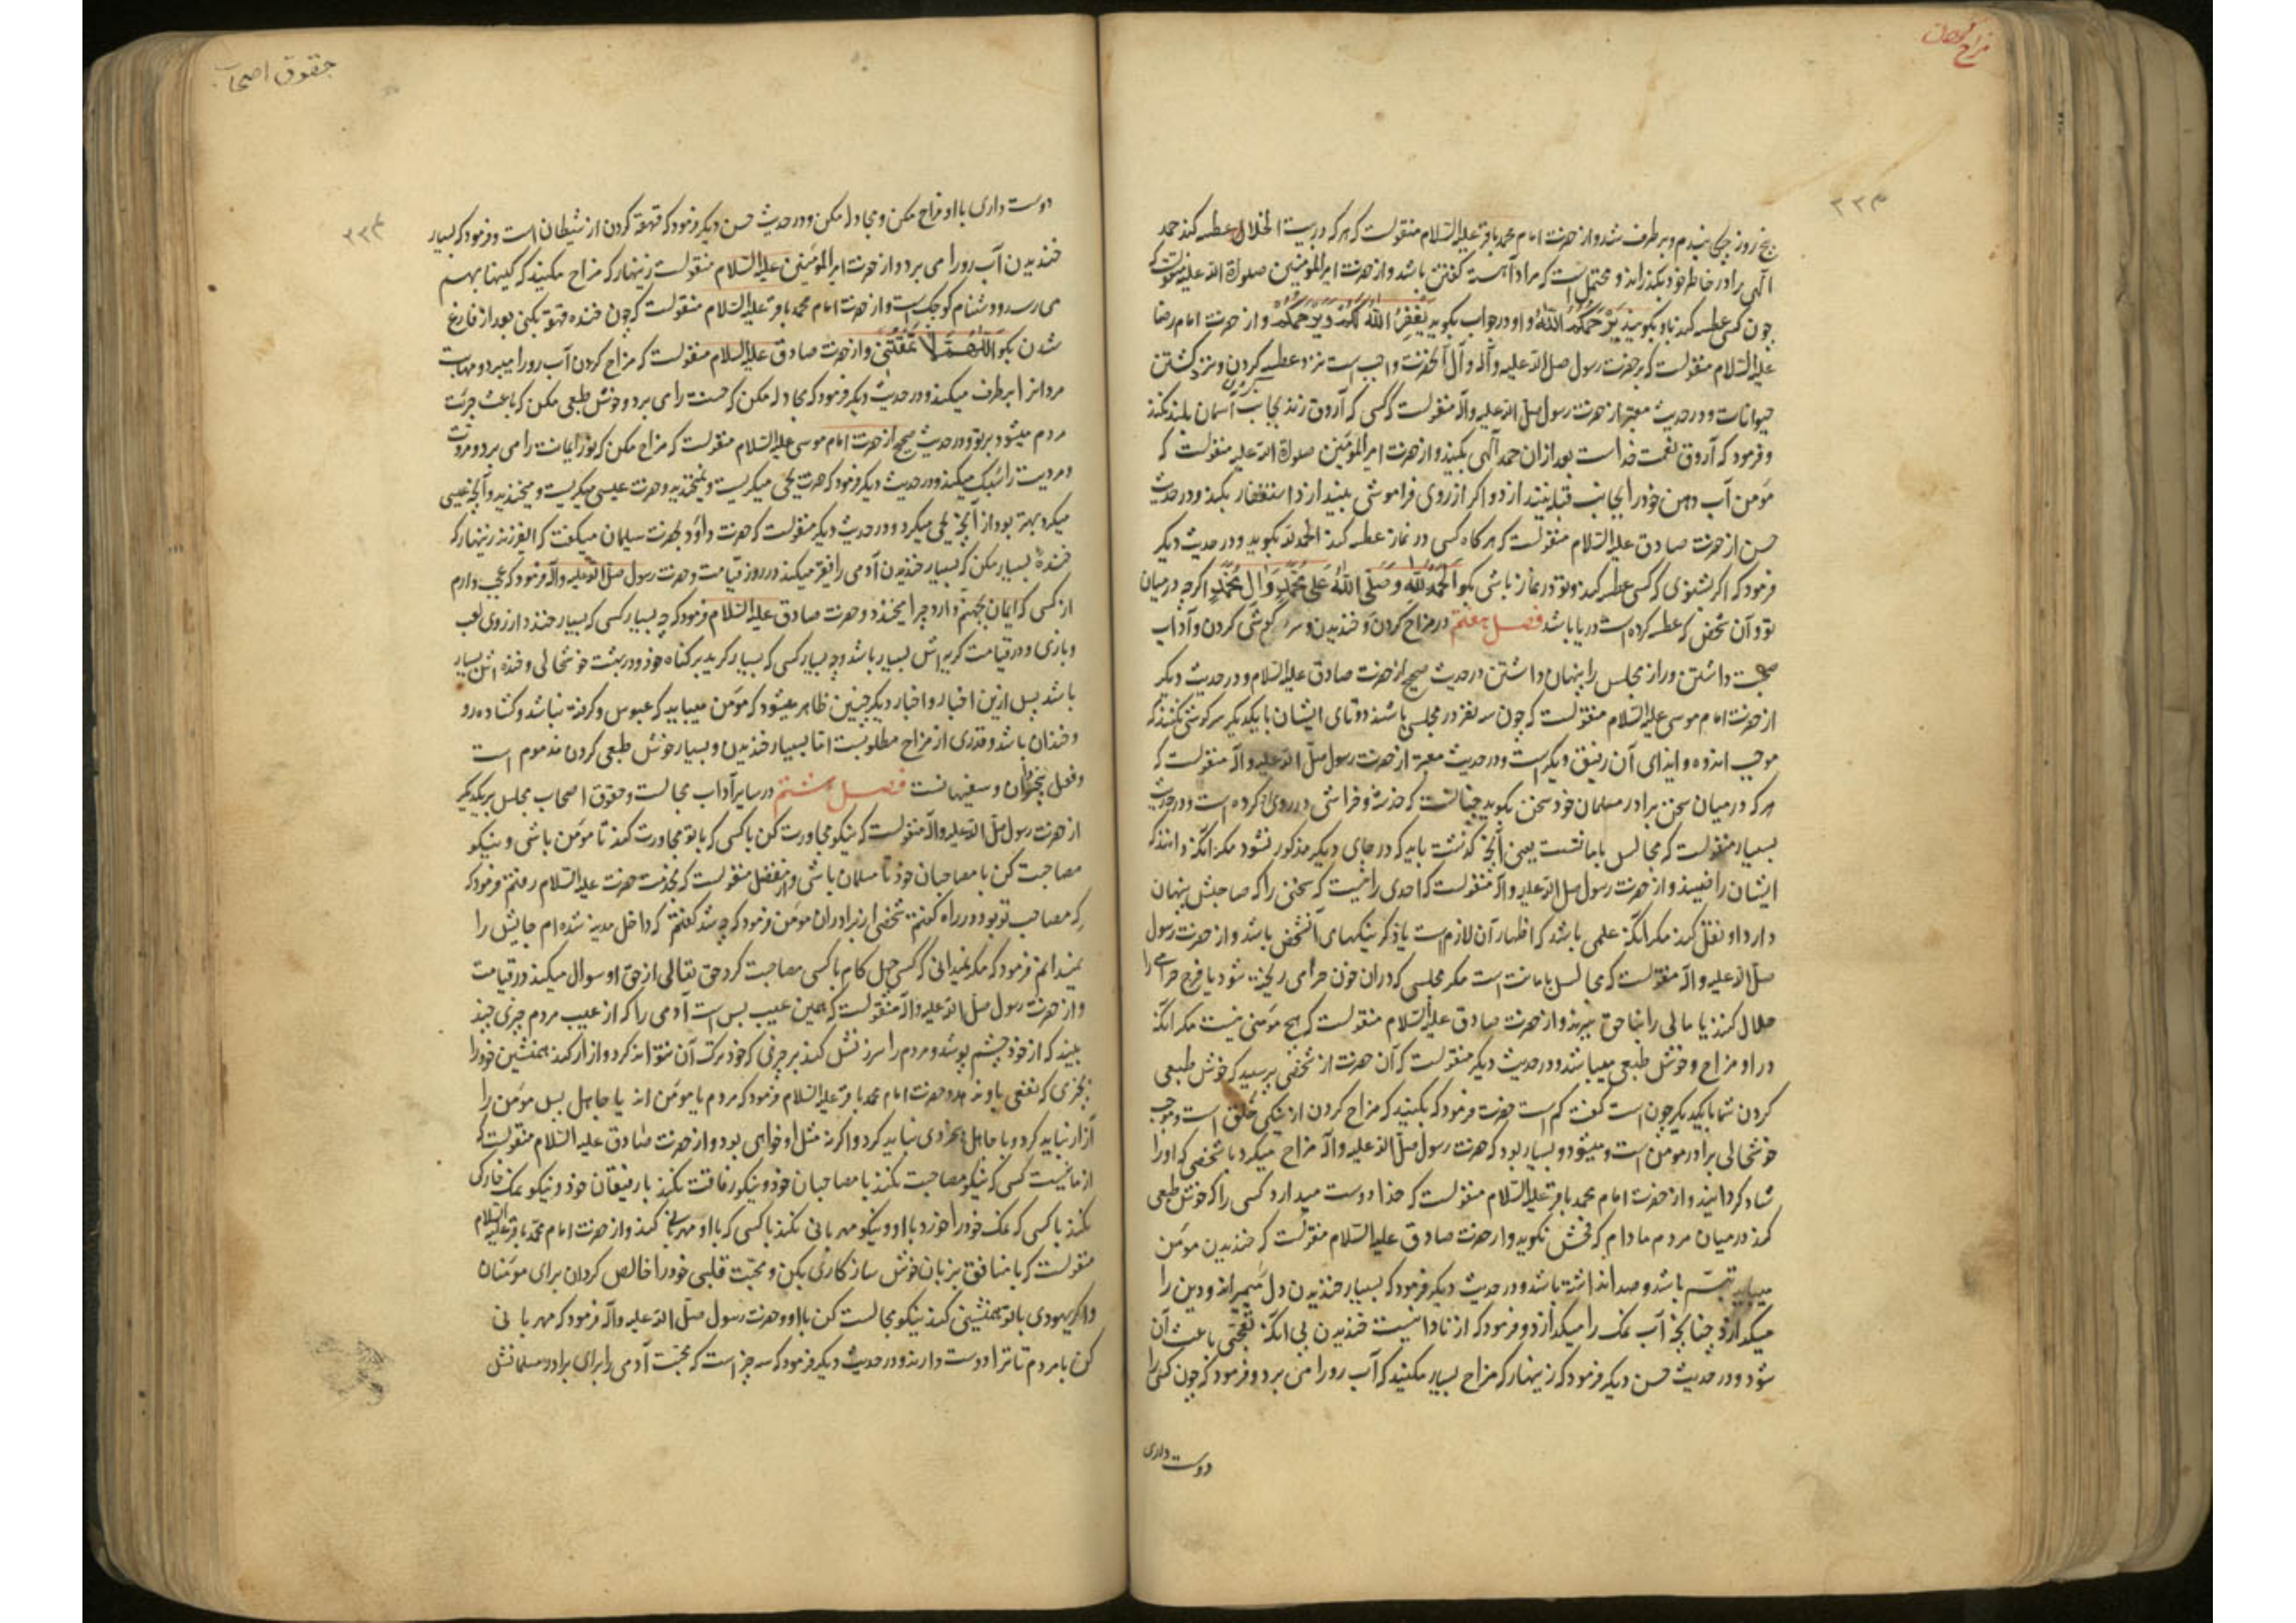 مزاح کردن
۲۲۳
پنج روز چکی بندم و برطرف شد و از حضرت امام محمد باقر علیه السلام منقولست که هر که در بیت الخلا عطسه کند حمد
الهی را در خاطر خود بگذراند و محتمل است که مراد آهسته گفتن باشد و از حضرت امیر المؤمنین صلوات الله علیه منقولست که
چون کسی عطسه کند باو بگویید یَرْحَمُکُمُ اللهُ و او در جواب بگوید یَغْفِرُ اللهُ لَکُمْ وَیَرْحَمُکُمْ و از حضرت امام رضا
علیه السلام منقولست که بر حضرت رسول صلی الله علیه و آله و آل آنحضرت واجب است نزد عطسه کردن و نزد کشتن
حیوانات و در حدیث معتبر از حضرت رسول صلی الله علیه و آله منقولست که کسی که آروق زند بجانب آسمان بلند نکند
و فرمود که آروق نعمت خداست بعد از آن حمد الهی بکنید و از حضرت امیر المؤمنین صلوات الله علیه منقولست که
مؤمن آب دهن خود را بجانب قبله نیندازد و اگر از روی فراموشی بیندازد استغفار بکند و در حدیث
حسن از حضرت صادق علیه السلام منقولست که هرگاه کسی در نماز عطسه کند الحمد لله بگوید و در حدیث دیگر
فرمود که اگر بشنوی که کسی عطسه کند و تو در نماز باشی بگو اَلْحَمْدُ لِلّهِ وَ صَلَّی اللهُ عَلی مُحَمَّدٍ وَ الِ مُحَمَّدٍ اگرچه در میان
تو و آن شخص که عطسه کرده است دریا باشد فصل هفتم در مزاح کردن و خندیدن و سرگوشی کردن و آداب
صحبت داشتن و راز مجلس را پنهان داشتن در حدیث صحیح از حضرت صادق علیه السلام و در حدیث دیگر
از حضرت امام موسی علیه السلام منقولست که چون سه نفر در مجلسی باشند دوتای ایشان با یکدیگر سرگوشی نکنند که
موجب اندوه و ایذای آن رفیق دیگر است و در حدیث معتبر از حضرت رسول صلی الله علیه و آله منقولست که
هر که در میان سخن برادر مسلمان خود سخن بگوید چنانست که خدشه و خراشی در روی او کرده است و در حدیث
بسیار منقولست که مجالس بامانتست یعنی آنچه گذشت باید که در جای دیگر مذکور نشود مگر آنکه دانند که
ایشان راضیند و از حضرت رسول صلی الله علیه و آله منقولست که احدی را نیست که سخنی را که صاحبش پنهان
دارد او نقل کند مگر آنکه علمی باشد که اظهار آن لازم است یا ذکر نیکیهای آنشخص باشد و از حضرت رسول
صلی الله علیه و آله منقولست که مجالس بامانت است مگر مجلسی که در ان خون حرامی ریخته شود یا فرج حرامی را
حلال کنند یا مالی را بناحق ببرند و از حضرت صادق علیه السلام منقولست که هیچ مؤمنی نیست مگر آنکه
در او مزاح و خوش طبعی میباشد و در حدیث دیگر منقولست که آن حضرت از شخصی پرسید که خوش طبعی
کردن شما با یکدیگر چون است گفت کم است حضرت فرمود که بکنید که مزاح کردن از نیکی خلق است و موجب
خوشحالی برادر مؤمن است و میشود و بسیار بود که حضرت رسول صلی الله علیه و آله مزاح میکرد با شخصی که او را
شاد گردانید و از حضرت امام محمد باقر علیه السلام منقولست که خدا دوست میدارد کسی را که خوش طبعی
کند در میان مردم مادام که فحش نگوید و از حضرت صادق علیه السلام منقولست که خندیدن مؤمن
میباید تبسم باشد و صدا نداشته باشد و در حدیث دیگر فرمود که بسیار خندیدن دل را میمیراند و دین را
میگدازد چنانچه آب نمک را میگدازد و فرمود که از نادانیست خندیدن بی آنکه تعجبی باعث آن
شود و در حدیث حسن دیگر فرمود که زینهار که مزاح بسیار مکنید که آب رو را می برد و فرمود که چون کسی را
دوست داری
حقوق اصحاب
۲۲۴
دوست داری با او مزاح مکن و مجادله مکن و در حدیث حسن دیگر فرمود که قهقهه کردن از شیطان است و فرمود که بسیار
خندیدن آب رو را می برد و از حضرت امیر المؤمنین علیه السلام منقولست زینهار که مزاح مکنید که کینها بهم
می رسد و دشنام کوچک است و از حضرت امام محمد باقر علیه السلام منقولست که چون خنده قهقهه بکنی بعد از فارغ
شدن بگو اَللّهُمَّ لا تَمْقُتْنی و از حضرت صادق علیه السلام منقولست که مزاح کردن آب رو را میبرد و مهابت
مردانرا برطرف میکند و در حدیث دیگر فرمود که مجادله مکن که حسنت را می برد و خوش طبعی مکن که باعث جرئت
مردم میشود بر تو و در حدیث صحیح از حضرت امام موسی علیه السلام منقولست که مزاح مکن که نور ایمانت را می برد و مروت
و مردیت را سبک میکند و در حدیث دیگر فرمود که حضرت یحیی میگریست و نمیخندید و حضرت عیسی میگریست و میخندید و آنچه عیسی
میکرد بهتر بود از آنچه یحیی میکرد و در حدیث دیگر منقولست که حضرت داود بحضرت سلیمان میگفت که ای فرزند زینهار که
خنده بسیار مکن که بسیار خندیدن آدمی را فقیر میکند در روز قیامت و حضرت رسول صلی الله علیه و آله فرمود که عجب دارم
از کسی که ایمان بجهنم دارد چرا میخندد و حضرت صادق علیه السلام فرمود که چه بسیار کسی که بسیار خندد از روی لعب
و بازی و در قیامت گریه اش بسیار باشد و چه بسیار کسی که بسیار گرید بر گناه خود و در بهشت خوشحالی و خنده اش بسیار
باشد پس ازین اخبار و اخبار دیگر چنین ظاهر میشود که مؤمن میباید که عبوس و گرفته نباشد و گشاده رو
و خندان باشد و قدری از مزاح مطلوبست اما بسیار خندیدن و بسیار خوش طبعی کردن مذموم است
و فعل بیخردان و سفیهانست فصل هشتم در سایر آداب مجالست و حقوق اصحاب مجلس بر یکدیگر
از حضرت رسول صلی الله علیه و آله منقولست که نیکو مجاورت کن با کسی که با تو مجاورت کند تا مؤمن باشی و نیکو
مصاحبت کن با مصاحبان خود تا مسلمان باشی و از مفضل منقولست که بخدمت حضرت علیه السلام رفتم فرمود که
که مصاحب تو بود در راه گفتم شخصی از برادران مؤمن فرمود که چه شد گفتم که داخل مدینه شده ام جایش را
نمیدانم فرمود که مگر نمیدانی که کسی چهل گام با کسی مصاحبت کرد حق تعالی از حق او سوال میکند در قیامت
و از حضرت رسول صلی الله علیه و آله منقولست که همین عیب بس است آدمی را که از عیب مردم چیزی چند
بیند که از خود چشم پوشد و مردم را سرزنش کند بر چیزی که خود ترک آن نتواند کرد و آزار کند همنشین خود را
بچیزی که نفعی باو ندهد و حضرت امام محمد باقر علیه السلام فرمود که مردم یا مؤمن اند یا جاهل پس مؤمن را
آزار نباید کرد و با جاهل بیخردی نباید کرد و اگر نه مثل او خواهی بود و از حضرت صادق علیه السلام منقولست که
از ما نیست کسی که نیکو مصاحبت نکند با مصاحبان خود و نیکو رفاقت نکند با رفیقان خود و نیکو نمک خوارگی
نکند با کسی که نمک خود را خورد با او و نیکو مهربانی نکند با کسی که با او مهربانی کند و از حضرت امام محمد باقر علیه السلام
منقولست که با منافق بزبان خوش سازگاری بکن و محبت قلبی خود را خالص گردان برای مؤمنان
و اگر یهودی با تو همنشینی کند نیکو مجالست کن با او و حضرت رسول صلی الله علیه و آله فرمود که مهربانی
کن با مردم تا ترا دوست دارند و در حدیث دیگر فرمود که سه چیز است که محبت آدمی را برای برادر مسلمانش